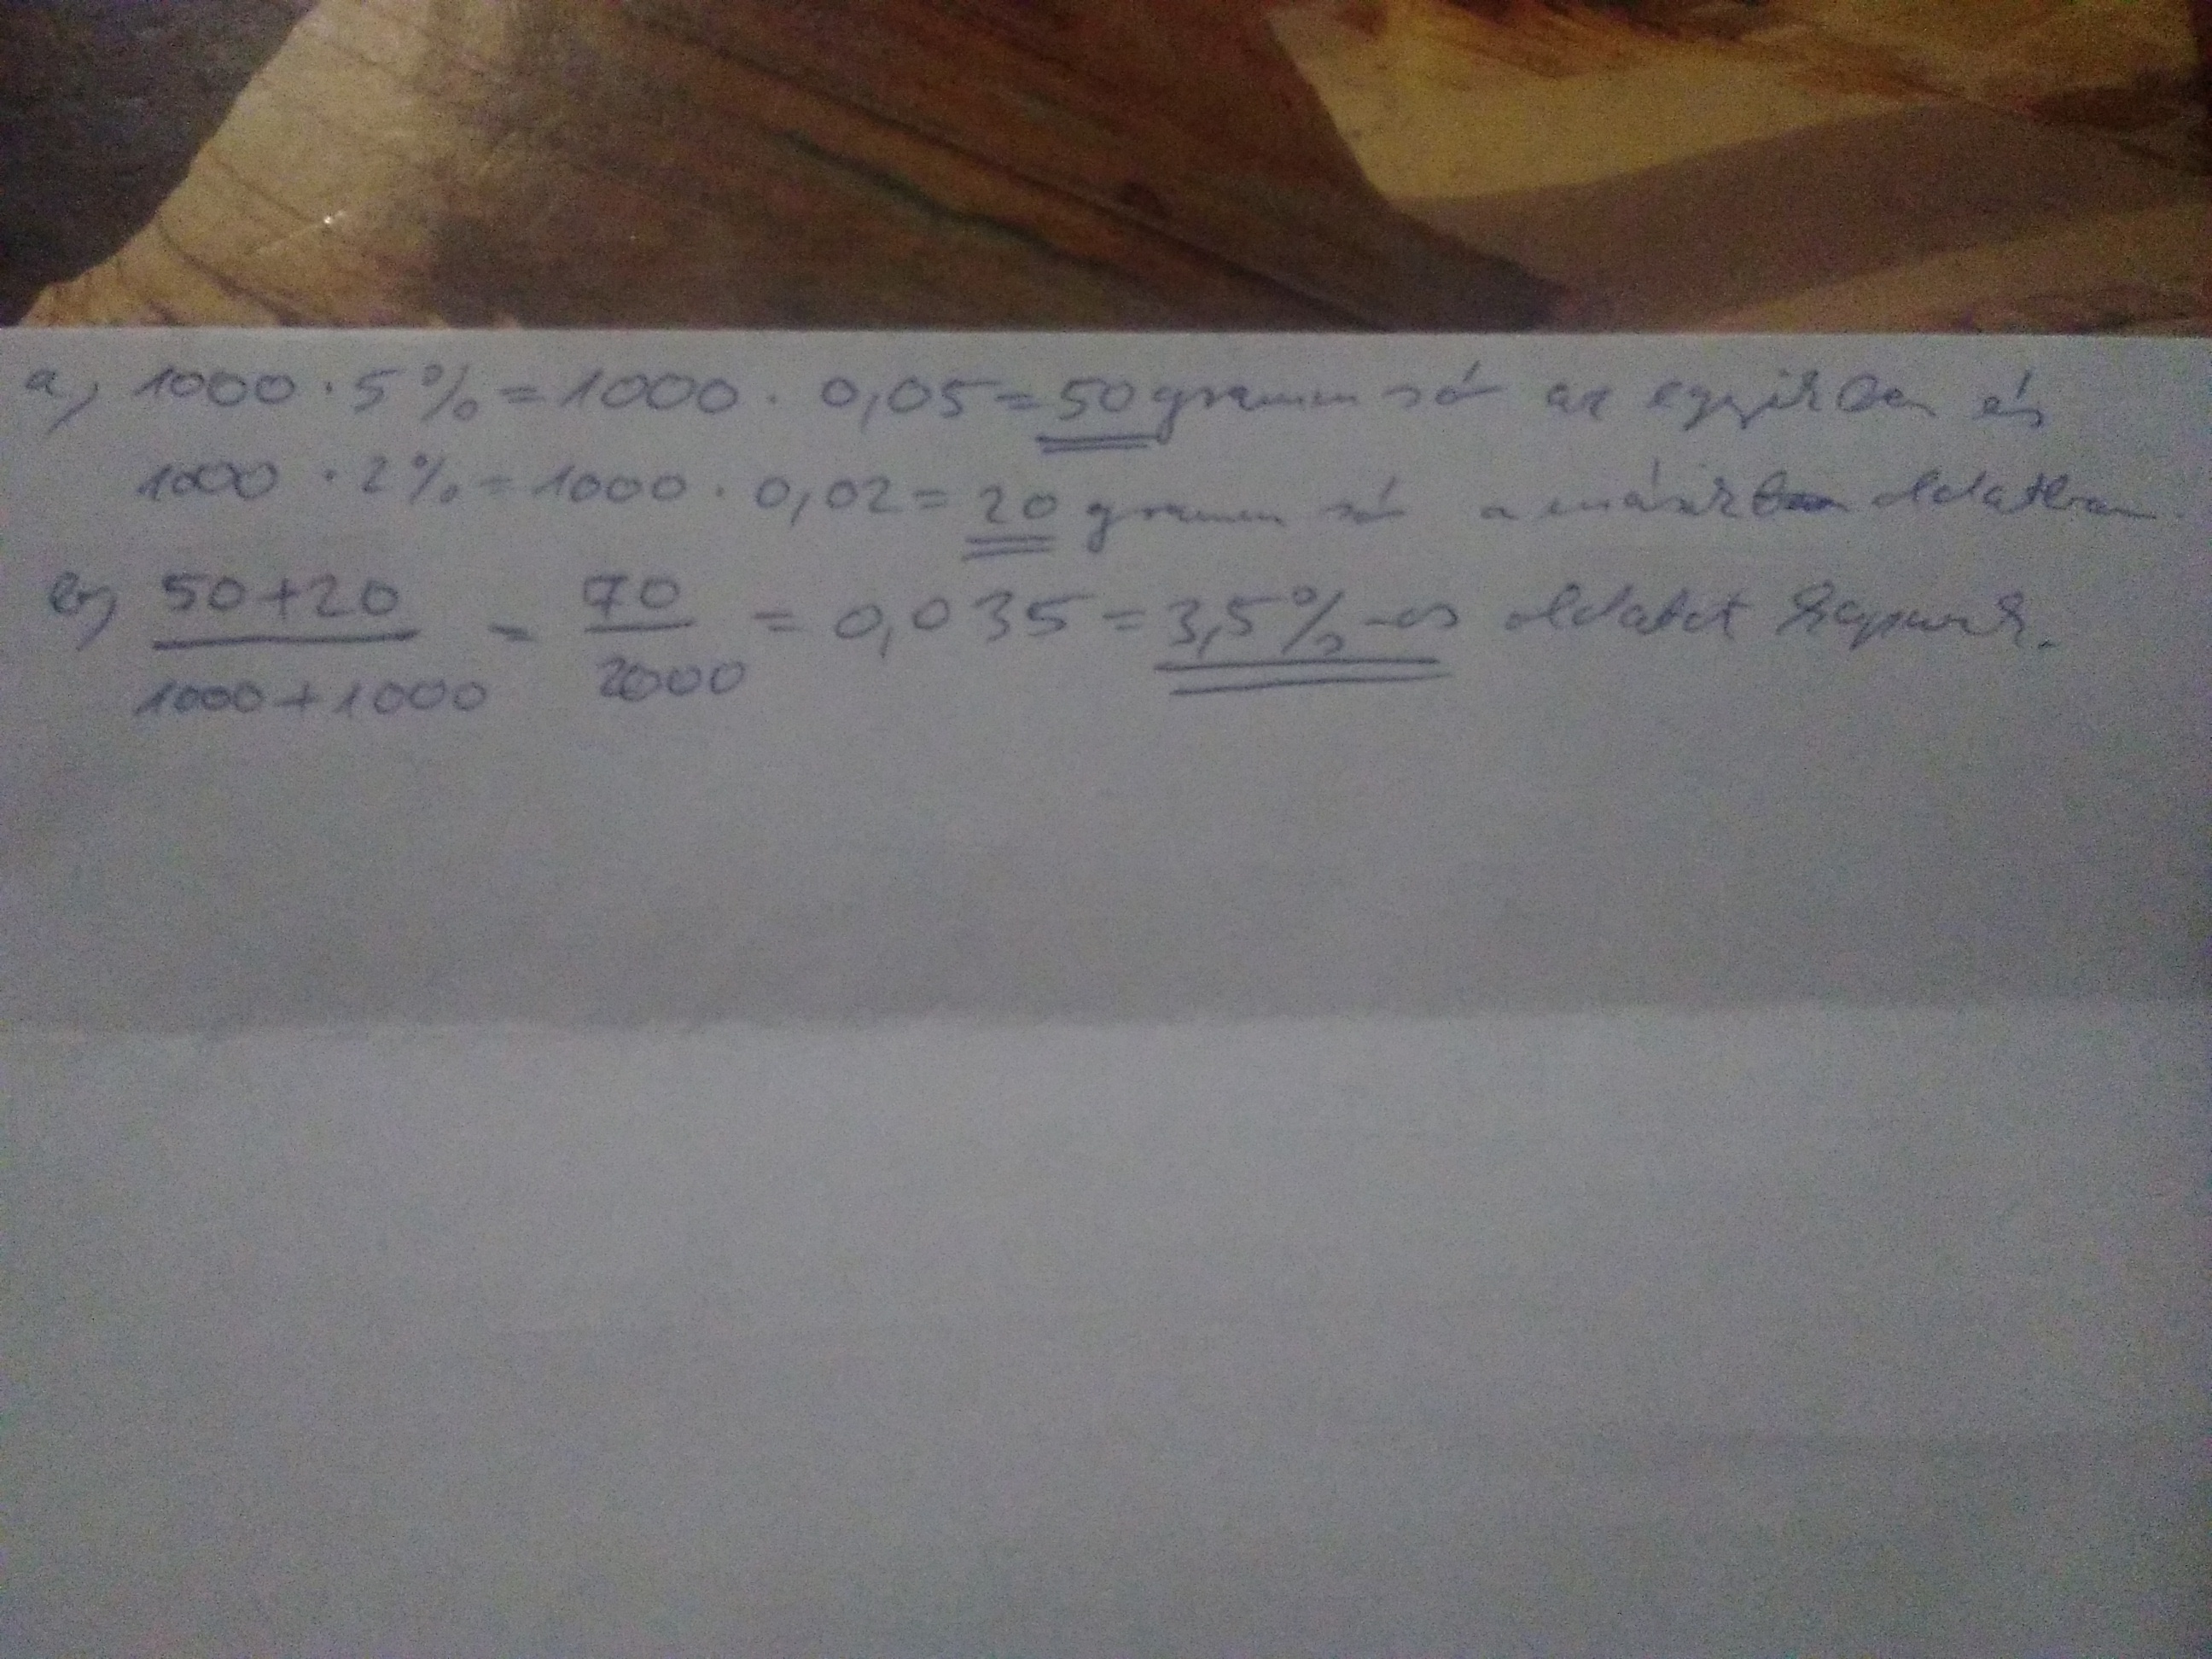 a, 1000 · 5% = 1000 · 0,05 = 50 gramm só az egyikben és
1000 · 2% = 1000 · 0,02 = 20 gramm só a másik oldatban.
b, 50+20 / 1000+1000 = 70 / 2000 = 0,035 = 3,5%-os oldatot kapunk.